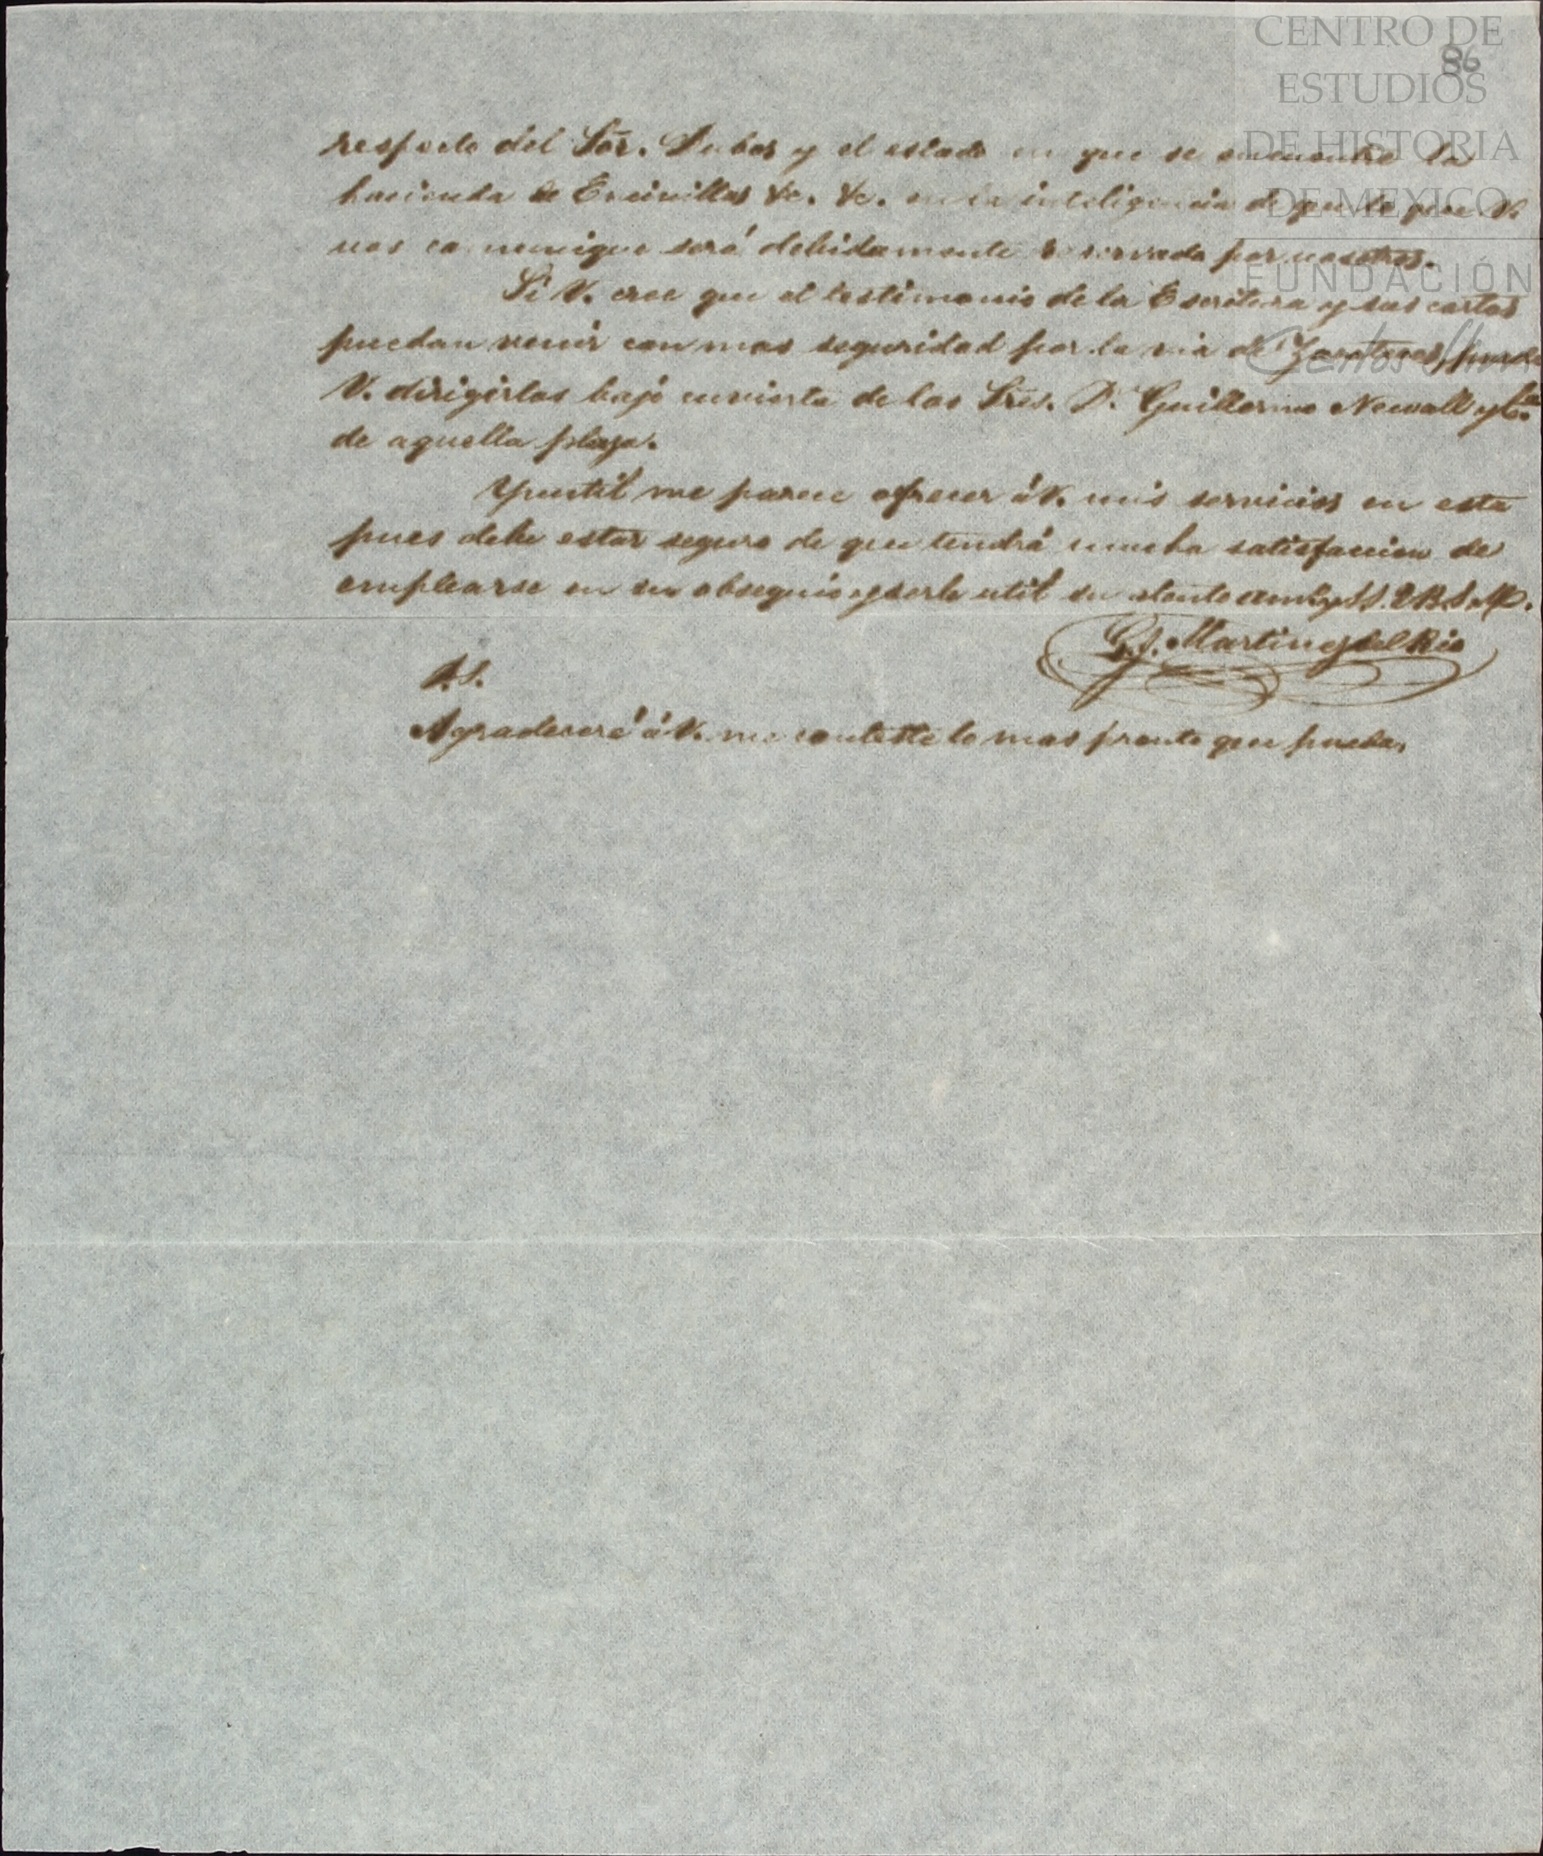 CENTRO DE
ESTUDIOS
DE HISTORIA
DE MEXICO
FUNDACIÓN
86
respecto del Sōr. Dubos y el estado en que se encuentre la
hacienda de Encinillas &c. &c. en la inteligencia de que lo que V.
nos comunique será debidamente reservado por nosotros.
Si V. cree que el testimonio de la Escritura y sus cartas
puedan venir con mas seguridad por la via de Zacatecas, puede
V. dirigirlas bajo cuvierta de los Sres. Dn. Guillermo Newall y Ca.
de aquella plaza.
Ynutil me parece ofrecer á V. mis servicios en esta
pues debe estar seguro de que tendrá mucha satisfaccion de
emplearse en su obsequio y serle util su atento amigo y S. S. Q. B. S. M.
G. J. Martinez del Rio
P. S.
Agradeceré á V. me conteste lo mas pronto que pueda.